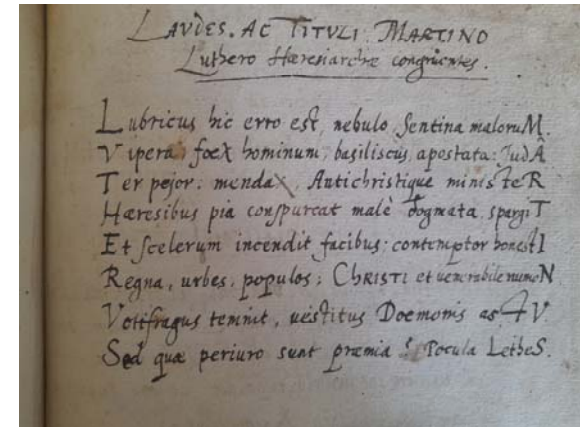 LAVDES. AC TITVLI MARTINO
Luthero Hæresiarchæ congruentes.
Lubricus hic erro est, nebulo, Sentina maloruM.
Vipera, foex hominum, basiliscus, apostata: JudÂ
Ter pejor: mendax, Antichristique ministeR
Hæresibus pia conspurcat malè dogmata, spargiT
Et scelerum incendit facibus: contemptor honestI
Regna, urbes, populos; CHRISTI et uenerabile numeN
Votifragus temnit, uestitus Doemonis astV.
Sed quæ periuro sunt præmia? Pocula LetheS.